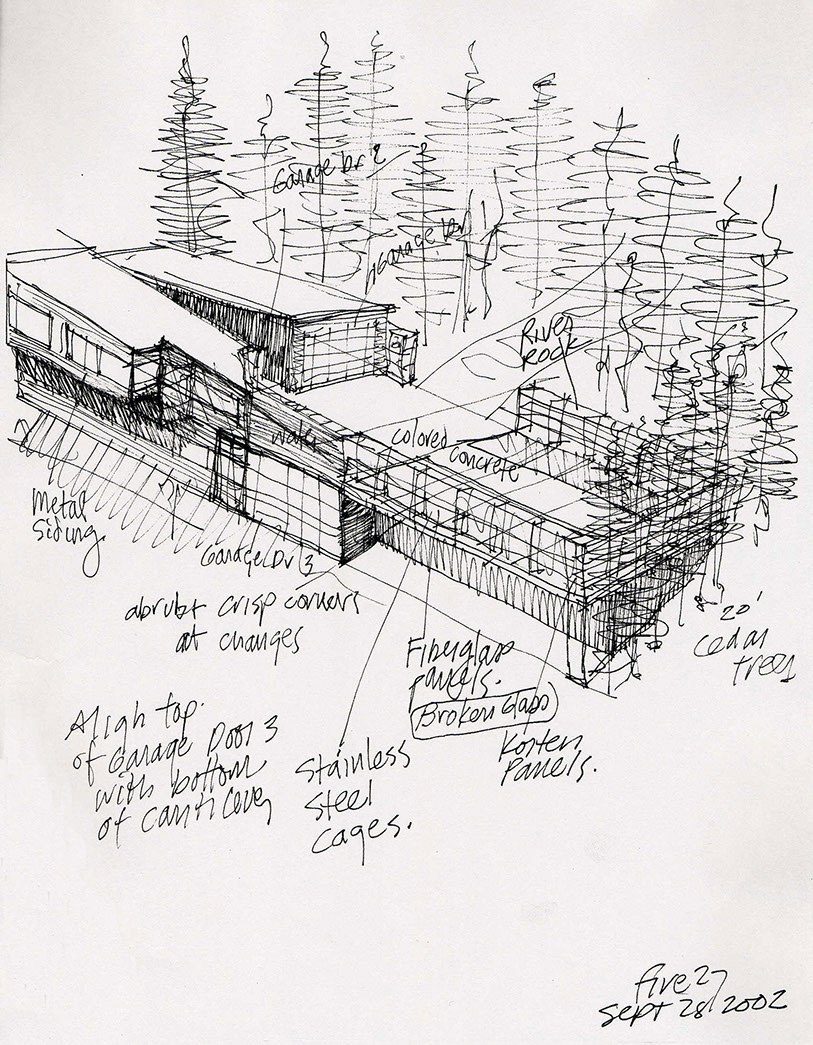 Garage Dr 2
Garage Dr 1
River
Rock
water
colored
concrete
Metal
Siding.
Garage Dr 3
abrubt crisp corners
at changes
20'
Cedar
trees
Fiberglass
panels.
Broken Glass
Korten
Panels.
Align top.
of Garage Door 3
with bottom
of Cantilever
Stainless
Steel
Cages.
five27
Sept 28 2002